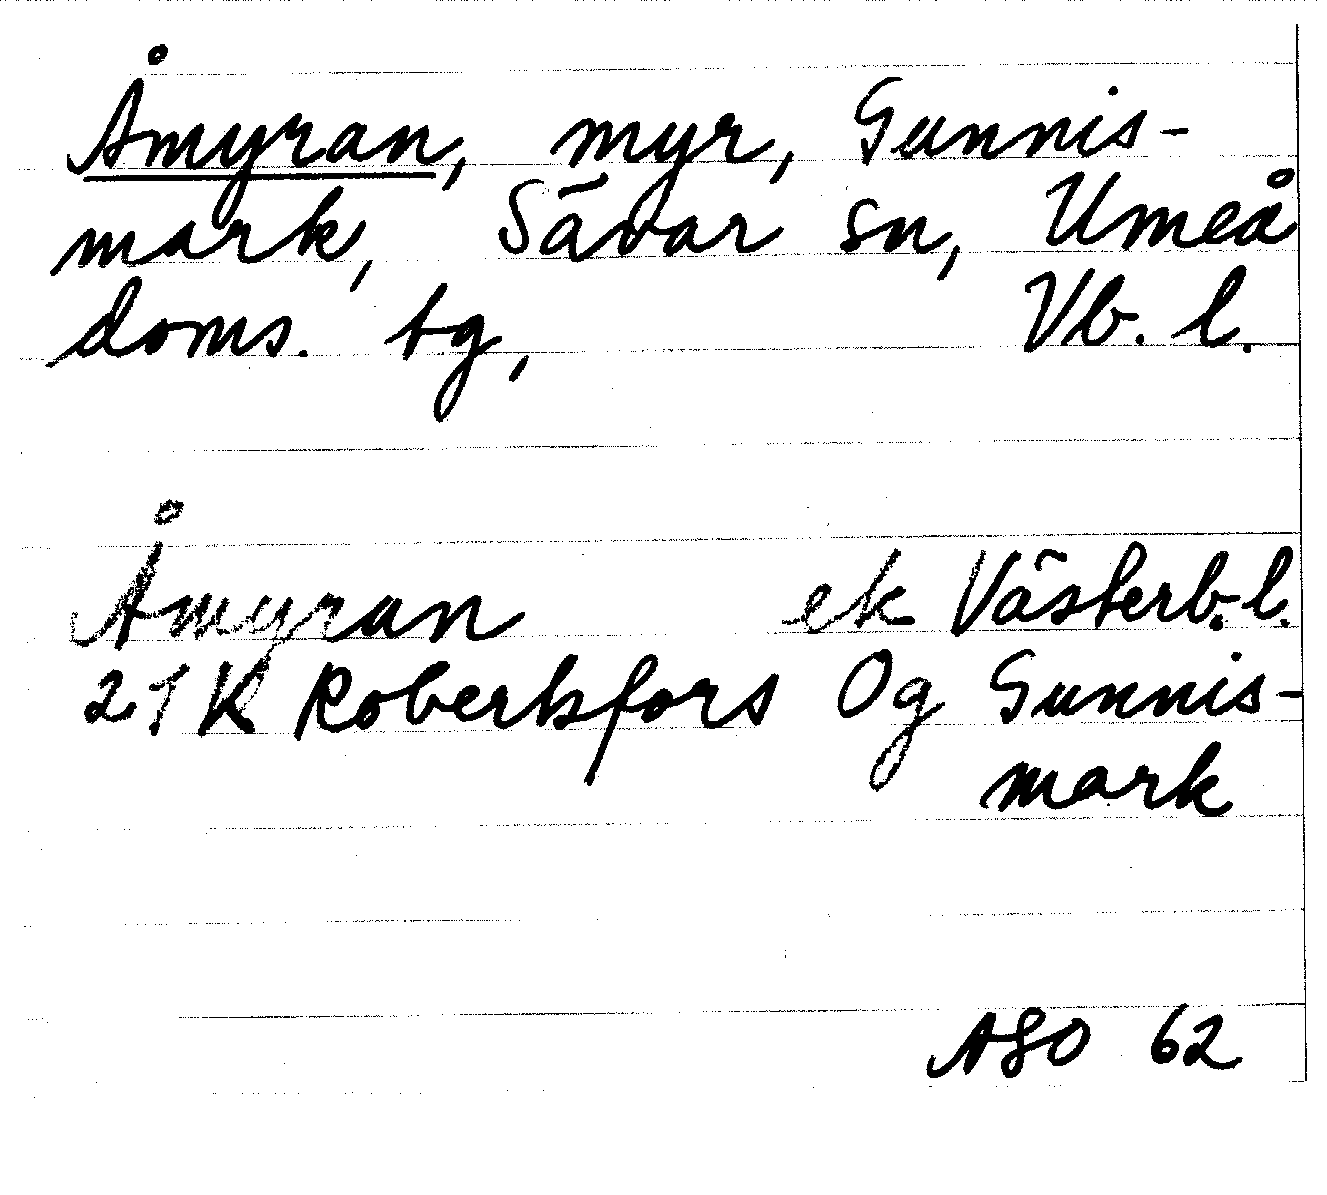 Åmyran, myr, Gunnis-
mark, Sävar sn, Umeå
doms. tg, Vb. l.
Åmyran ek Västerb.l.
21K Robertsfors Og Gunnis-
mark
ASO 62